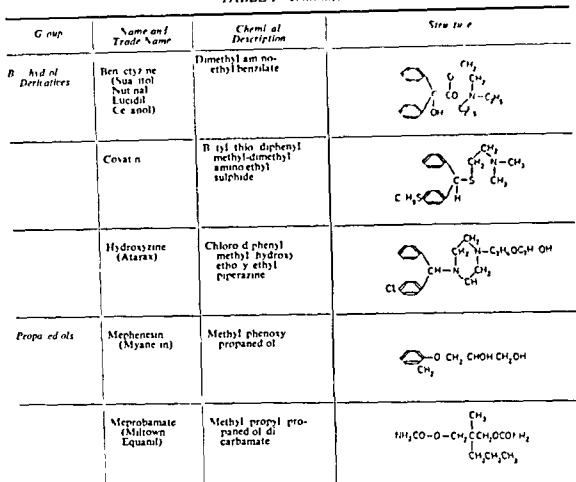 TABLE I
G oup
Name and
Trade Name
Chemi al
Description
Stru tu e
B hyd ol
Derivatives
Ben ctyz ne
(Sua itol
Nut nal
Lucidil
Ce anol)
Dimethyl am no-
ethyl benzilate
CH₂
CH₂
O
C CO N-C₂H₅
OH C₂H₅
Covat n
B tyl thio diphenyl
methyl-dimethyl
amino ethyl
sulphide
CH₂
CH₂ N-CH₃
C-S CH₃
C H₉S H
Hydroxyzine
(Atarax)
Chloro d phenyl
methyl hydroxy
etho y ethyl
piperazine
CH₂
CH₂ N-C₂H₄OC₂H OH
CH-N CH₂
Cl CH
Propa ed ols
Mephenesin
(Myane in)
Methyl phenoxy
propaned ol
O CH₂ CHOH CH₂OH
CH₂
Meprobamate
(Miltown
Equanil)
Methyl propyl pro-
paned ol di
carbamate
CH₃
NH₂CO-O-CH₂CCH₂OCONH₂
CH₂CH₂CH₃